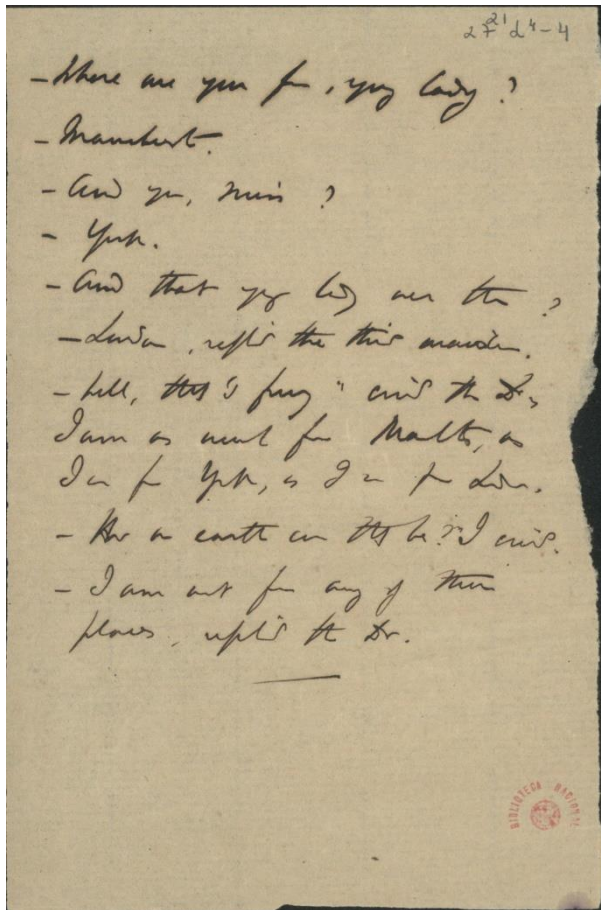 27 21 d4-4
- Where are you from, young lady?
- Manchester.
- And you, Miss?
- York.
- And that young lady over there?
- London, replied the third maiden.
- Well, that's funny" cried the Dr,
I am as much from Manchester, as
I am from York, as I am from London.
- How on earth can that be? I cried.
- I am not from any of these
places, replied the Dr.
BIBLIOTECA NACIONAL